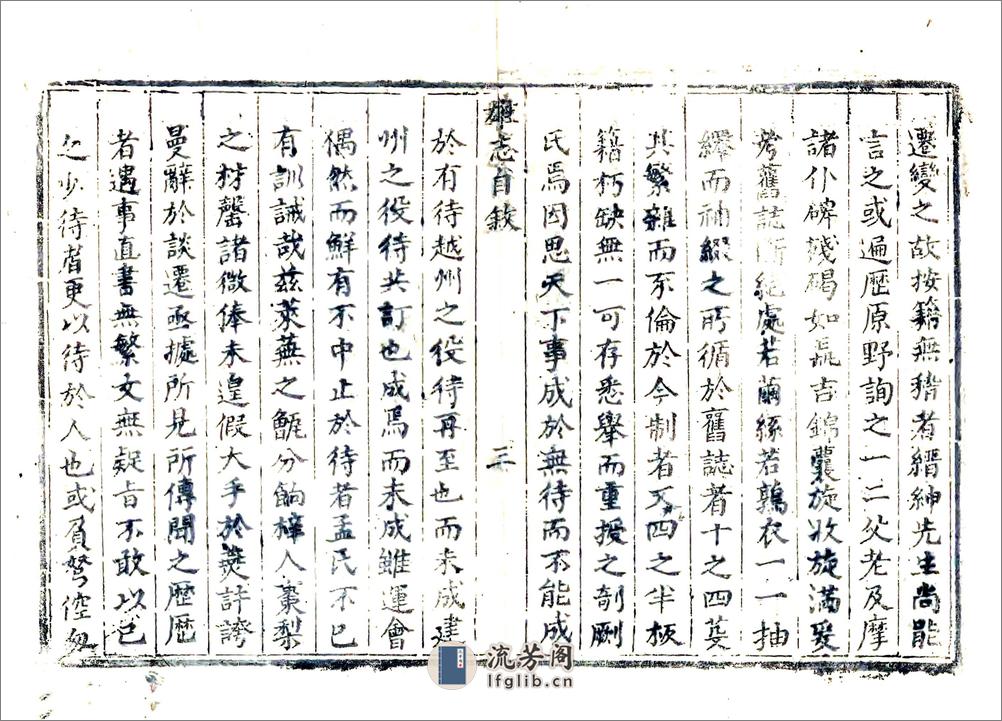 遷變之故按籍無稽者縉紳先生尚能
言之或遍歷原野詢之一二父老及摩
諸仆碑殘碣如長吉錦囊旋收旋滿爰
考舊誌斷絕處若繭絲若鶉衣一一抽
繹而補綴之所循於舊誌者十之四芟
其繁雜而不倫於今制者又四之半板
籍朽缺無一可存悉舉而重授之剞劂
氏焉因思天下事成於無待而不能成
志自敘
三
於有待越州之役待再至也而未成建
州之役待共訂也成焉而未成雖運會
偶然而鮮有不中止於待者孟民不已
有訓誡哉茲萊蕪之甑分餉梓人棗梨
之材罄諸微俸未遑假大手於 許誇
曼辭於談遷亟據所見所傳聞之歷歷
者遇事直書無繁文無疑旨不敢以已
之少待者更以待於人也或負弩倥匆
流芳閣
lfglib.cn